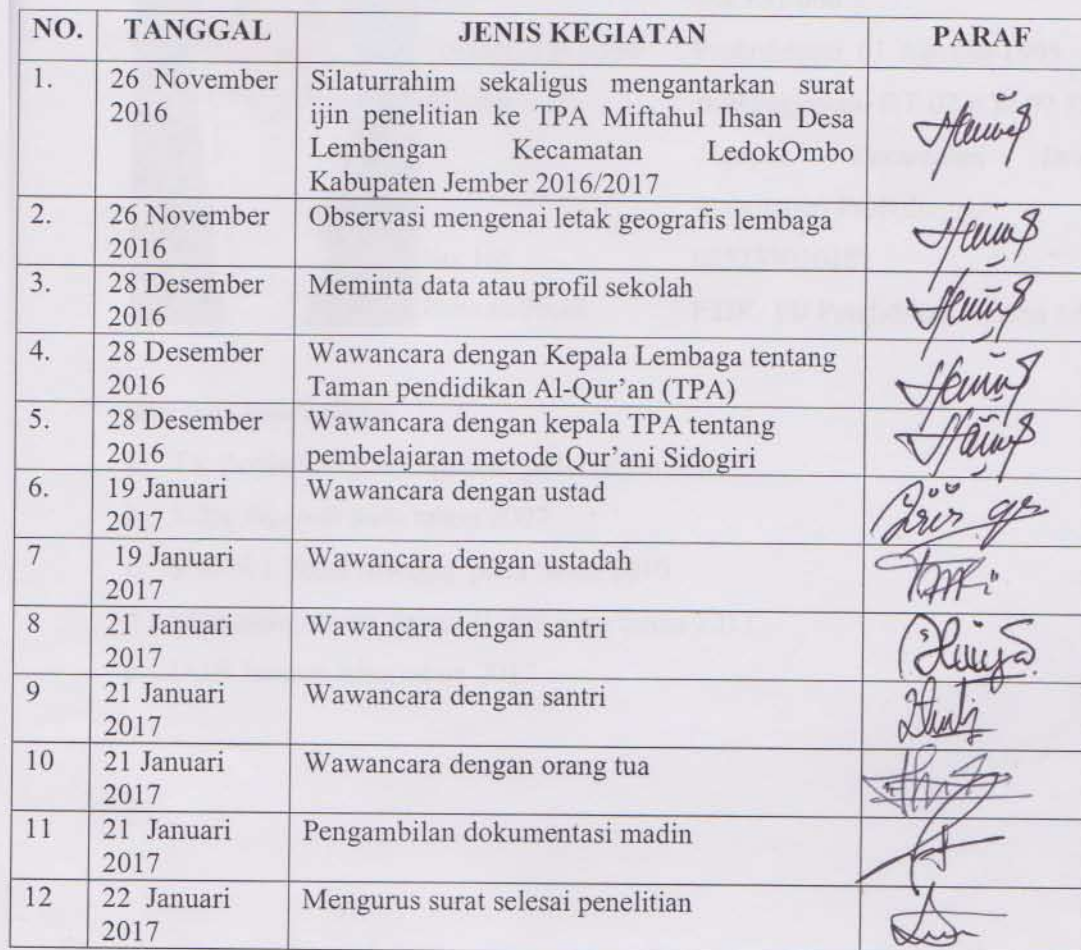 NO. TANGGAL JENIS KEGIATAN PARAF
1. 26 November Silaturrahim sekaligus mengantarkan surat
2016 ijin penelitian ke TPA Miftahul Ihsan Desa
Lembengan Kecamatan LedokOmbo
Kabupaten Jember 2016/2017
2. 26 November Observasi mengenai letak geografis lembaga
2016
3. 28 Desember Meminta data atau profil sekolah
2016
4. 28 Desember Wawancara dengan Kepala Lembaga tentang
2016 Taman pendidikan Al-Qur'an (TPA)
5. 28 Desember Wawancara dengan kepala TPA tentang
2016 pembelajaran metode Qur'ani Sidogiri
6. 19 Januari Wawancara dengan ustad
2017
7 19 Januari Wawancara dengan ustadah
2017
8 21 Januari Wawancara dengan santri
2017
9 21 Januari Wawancara dengan santri
2017
10 21 Januari Wawancara dengan orang tua
2017
11 21 Januari Pengambilan dokumentasi madin
2017
12 22 Januari Mengurus surat selesai penelitian
2017